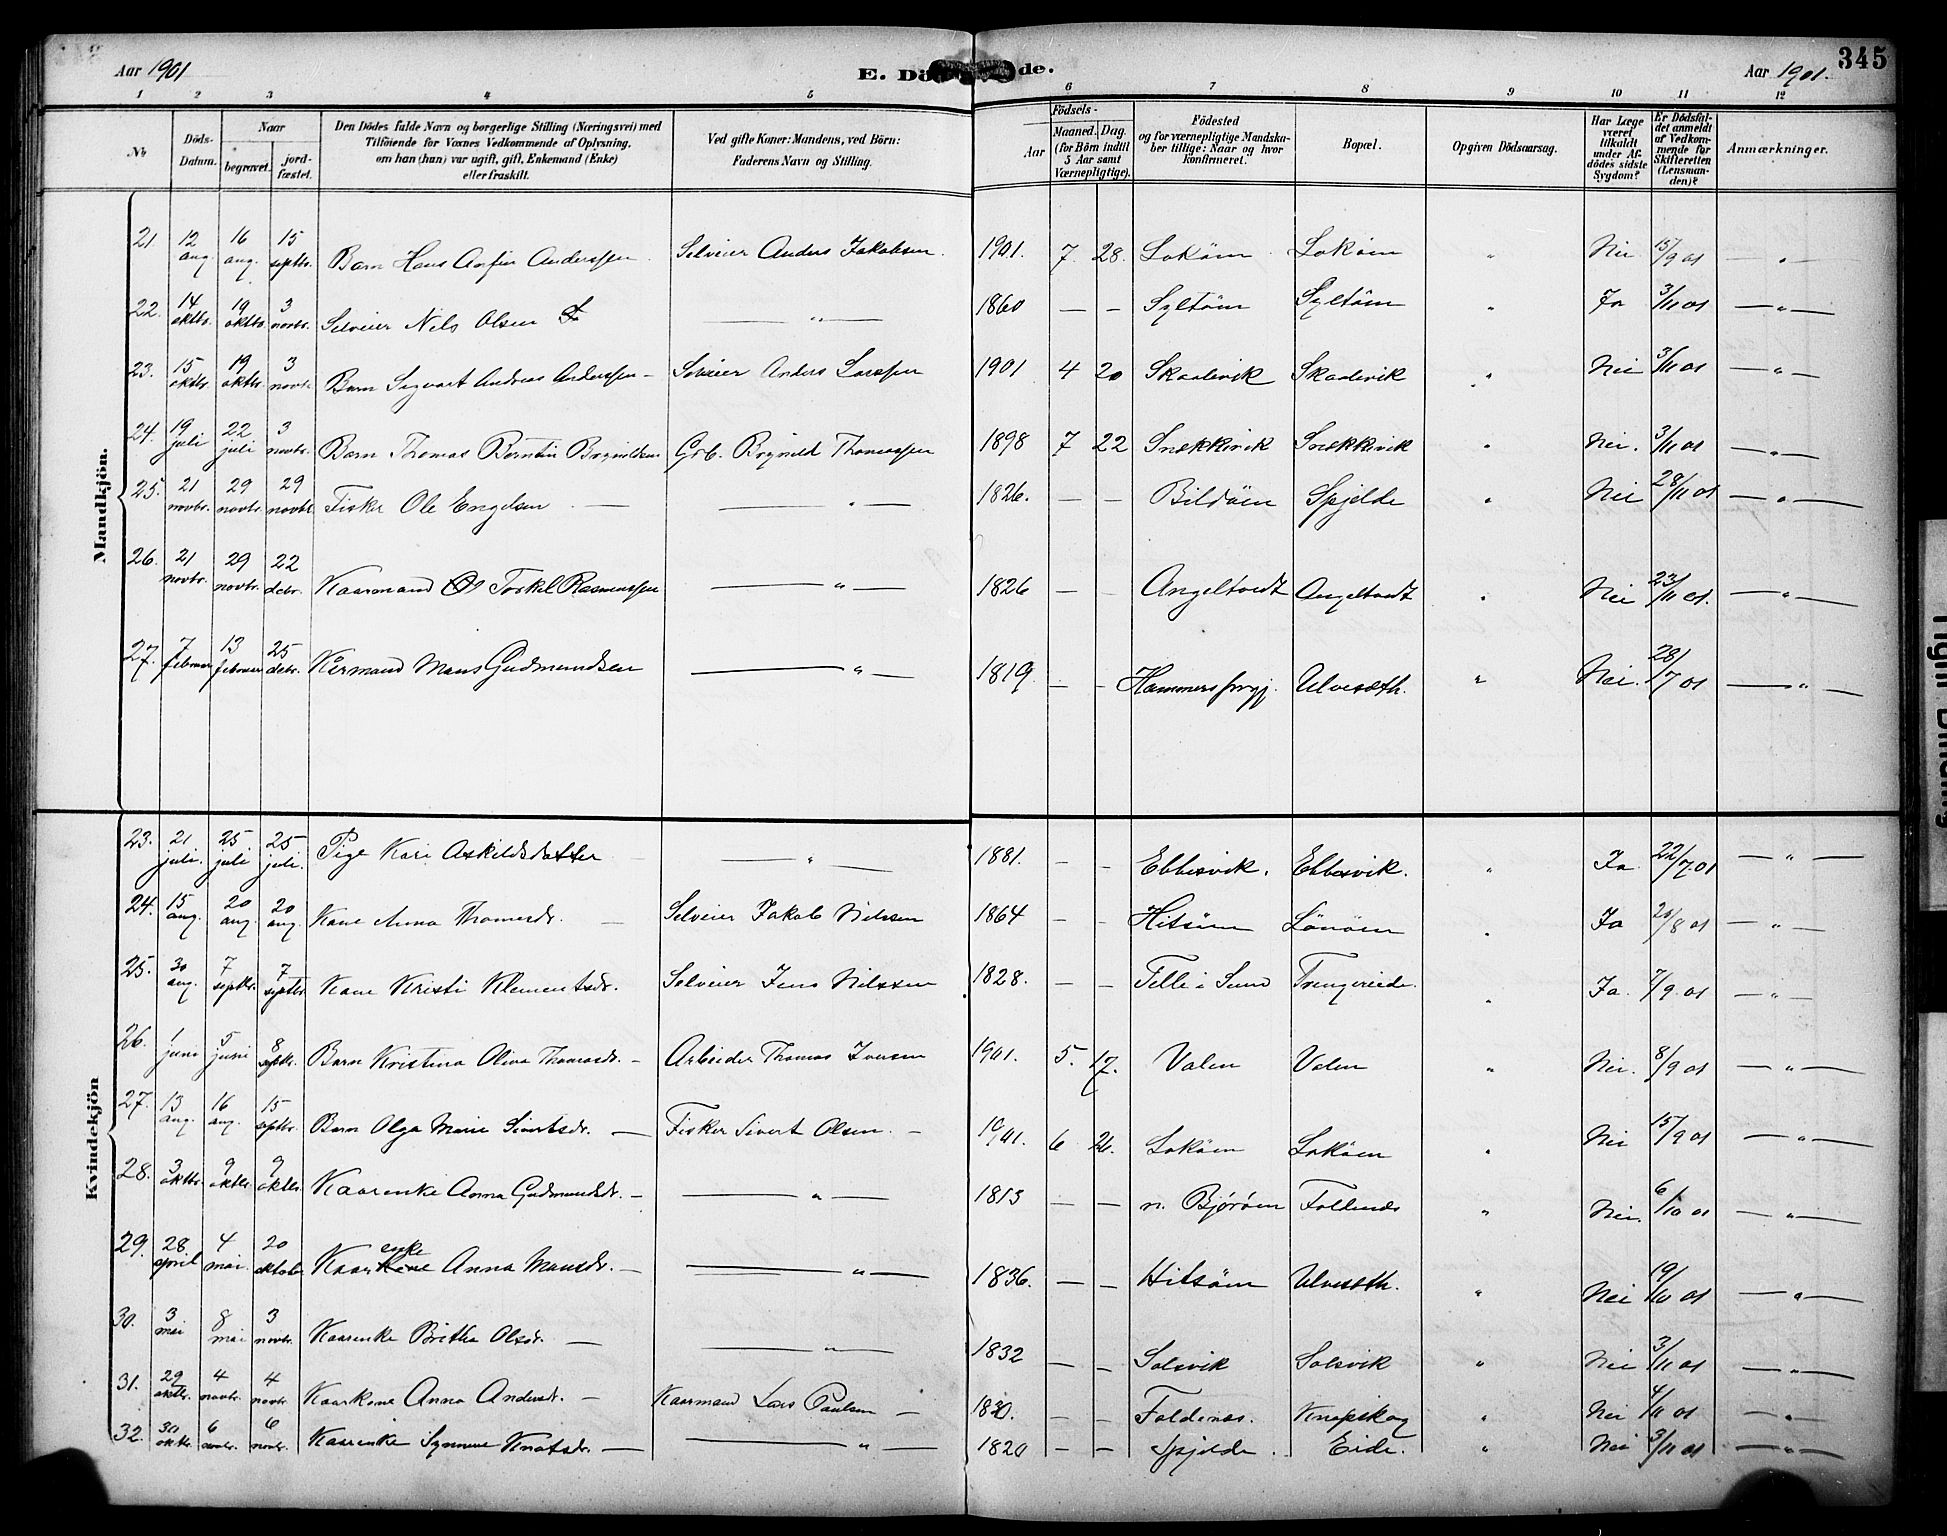 Aar 1901 E. Dö de. Aar 1901. 345
1 2 3 4 5 6 7 8 9 10 11 12
No Döds-Datum. Naar begravet. jord-fæstet. Den Dödes fulde Navn og borgerlige Stilling (Næringsvei) med Tilföiende for Voxnes Vedkommende af Oplysning, om han (hun) var ugift, gift, Enkemand (Enke) eller fraskilt. Ved gifte Koner: Mandens, ved Börn: Faderens Navn og Stilling. Födsels- Aar Maaned. Dag. (for Börn indtil 5 Aar samt Værnepligtige). Födested og for værnepligtige Mandskaber tillige: Naar og hvor konfirmeret. Bopæl. Opgiven Dödsaarsag. Har Læge været tilkaldt under Afdödes sidste Sygdom? Er Dödsfaldet anmeldt af Vedkommende for Skifteretten (Lensmanden)? Anmærkninger.
Mandkjön.
21. 12 aug. 16 aug. 15 septbr. Barn Hans Anfin Anderssen. Selveier Anders Jakobsen. 1901. 7. 28. Lokøen Lokøen " Nei 15/9 01 — " —
22. 14 oktbr. 19 oktbr. 3 novbr. Selveier Nils Olsen — " — 1860 — — Syltøen Syltøen " Ja 3/11 01 — " —
23. 15 oktbr. 19 oktbr. 3 novbr. Barn Sigvart Andreas Anderssen — Selveier Anders Larssen 1901 4 20 Skaalevik Skaalevik " Nei 3/11 01 — " —
24. 19 juli 22 juli 3 novbr. Barn Thomas Berntin Brynildsen Grb. Brynild Thomassen 1898 7 22 Snekkevik Snekkevik " Nei. 3/11 01 — " —
25. 21 novbr. 29 novbr. 29 novbr. Fisker Ole Engelsen — — " — 1826. — — Bildøen Spjelde " Nei 28/11 01 — " —
26. 21 novbr. 29 novbr. 22 debr. Kaarmand Torkel Rasmussen — " — 1826 — — Angeltvedt Angeltvedt " Nei 23/11 01. — " —
27. 7 februar 13 februar 25 debr. Kårmand Mons Gudmundsen — " — 1819 — — Hammersprgj. Ulvesæth. " Nei. 28/7 01 — " —
Kvindekjön
23. 21 juli. 25 juli 25 juli. Pige Kari Askildsdatter — " — 1881. — — Ebbesvik. Ebbesvik. " Ja 22/7.01 — " —
24. 15 aug. 20 aug. 20 aug. Kone Anna Thomasdr. — Selveier Jakob Nilssen 1864 — — Hitsøen Lønøen " Ja 20/8 01 — " —
25. 30 aug. 7 septbr. 7 septbr. Kone Kristi Klementsdr. Selveier Jens Nilssen 1828. — — Telle i Sund Trengereide. " Ja. 7/9.01 — " —
26. 1 juni 5 juni 8 septbr. Barn Kristina Oliva Thomasdr. — Arbeider Thomas Iversen 1901. 5. 17. Valen Valen " Nei. 8/9 01 — " —
27. 13 aug. 16 aug. 15 septbr. Barn Olga Marie Sivertsdr. — Fisker Sivert Olsen. — 1901. 6 26. Lokøen Lokøen " Nei 15/9 01 — " —
28. 3 oktbr. 9 oktbr. 9 oktbr. Kaarenke Anna Gudmundsdr. — — " — 1813 — — n. Bjørøen Foldenes " Nei. 6/10 01 — " —
29. 28. april 4 mai. 20 oktober Kaarkone enke Anna Monsdr. — — " — 1836. — — Hitsøen Ulvesæth. " Nei 19/10 01 — " —
30. 3 mai 8 mai 3 novbr. Kaarenke Britha Olsdr. — — " — 1832 — — Solsvik Solsvik " Nei 3/11 01 — " —
31. 29 oktbr. 4 novbr. 4 novbr. Kaarkone Anna Andersdr. — Kaarmand Lars Paulsen — 1830. — — Foldenes. Knapskog " Nei 4/11 01 — " —
32. 30 oktbr. 6 novbr. 6 novbr. Kaarenke Synneve Knutsdr. — — " — 1820 — — Spjelde. Eide. " Nei 3/11 01 — " —